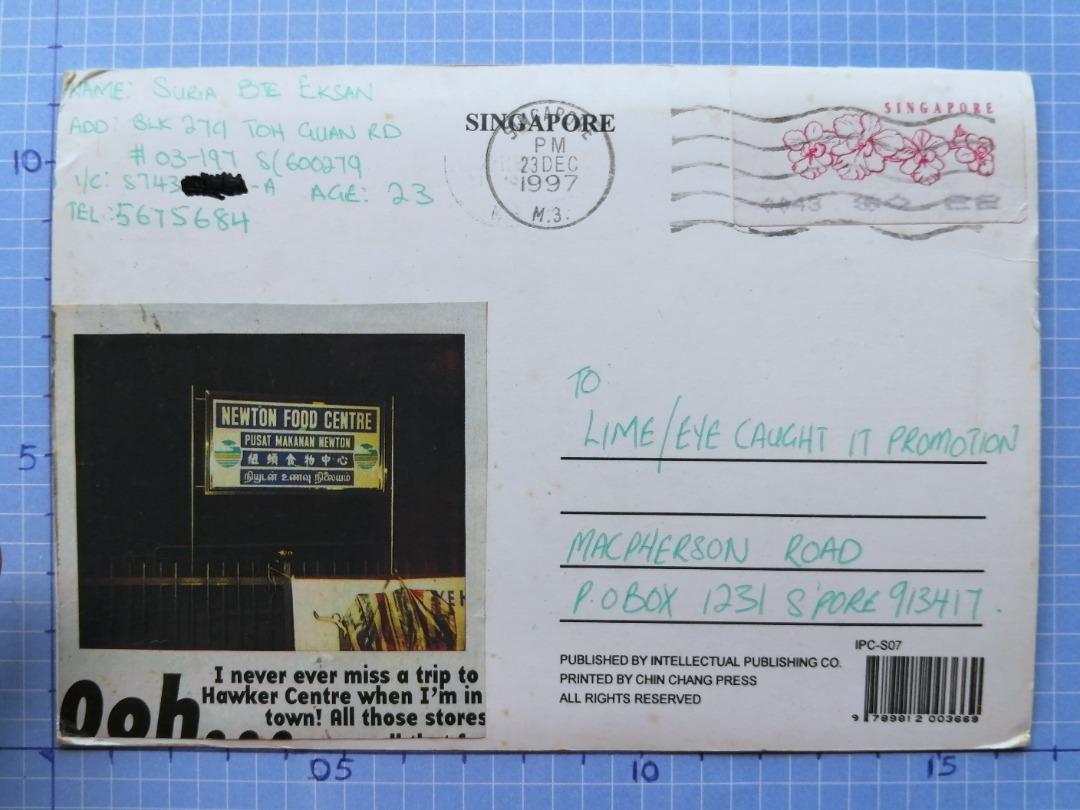 NAME: SURIA BTE EKSAN
ADD: BLK 279 TOH GUAN RD
#03-197 S(600279
I/C: S743 -A AGE: 23
TEL: 5675684
SINGAPORE
PM
23 DEC
1997
M.3.
SINGAPORE
NEWTON FOOD CENTRE
PUSAT MAKANAN NEWTON
纽頓食物中心
நியூடன் உணவு நிலையம்
YEH
Ooh...
I never ever miss a trip to
Hawker Centre when I'm in
town! All those stores
TO
LIME/EYE CAUGHT IT PROMOTION
MACPHERSON ROAD
P.O BOX 1231 S'PORE 913417.
IPC-S07
PUBLISHED BY INTELLECTUAL PUBLISHING CO.
PRINTED BY CHIN CHANG PRESS
ALL RIGHTS RESERVED
9 789812 003669
10
5
05
10
15